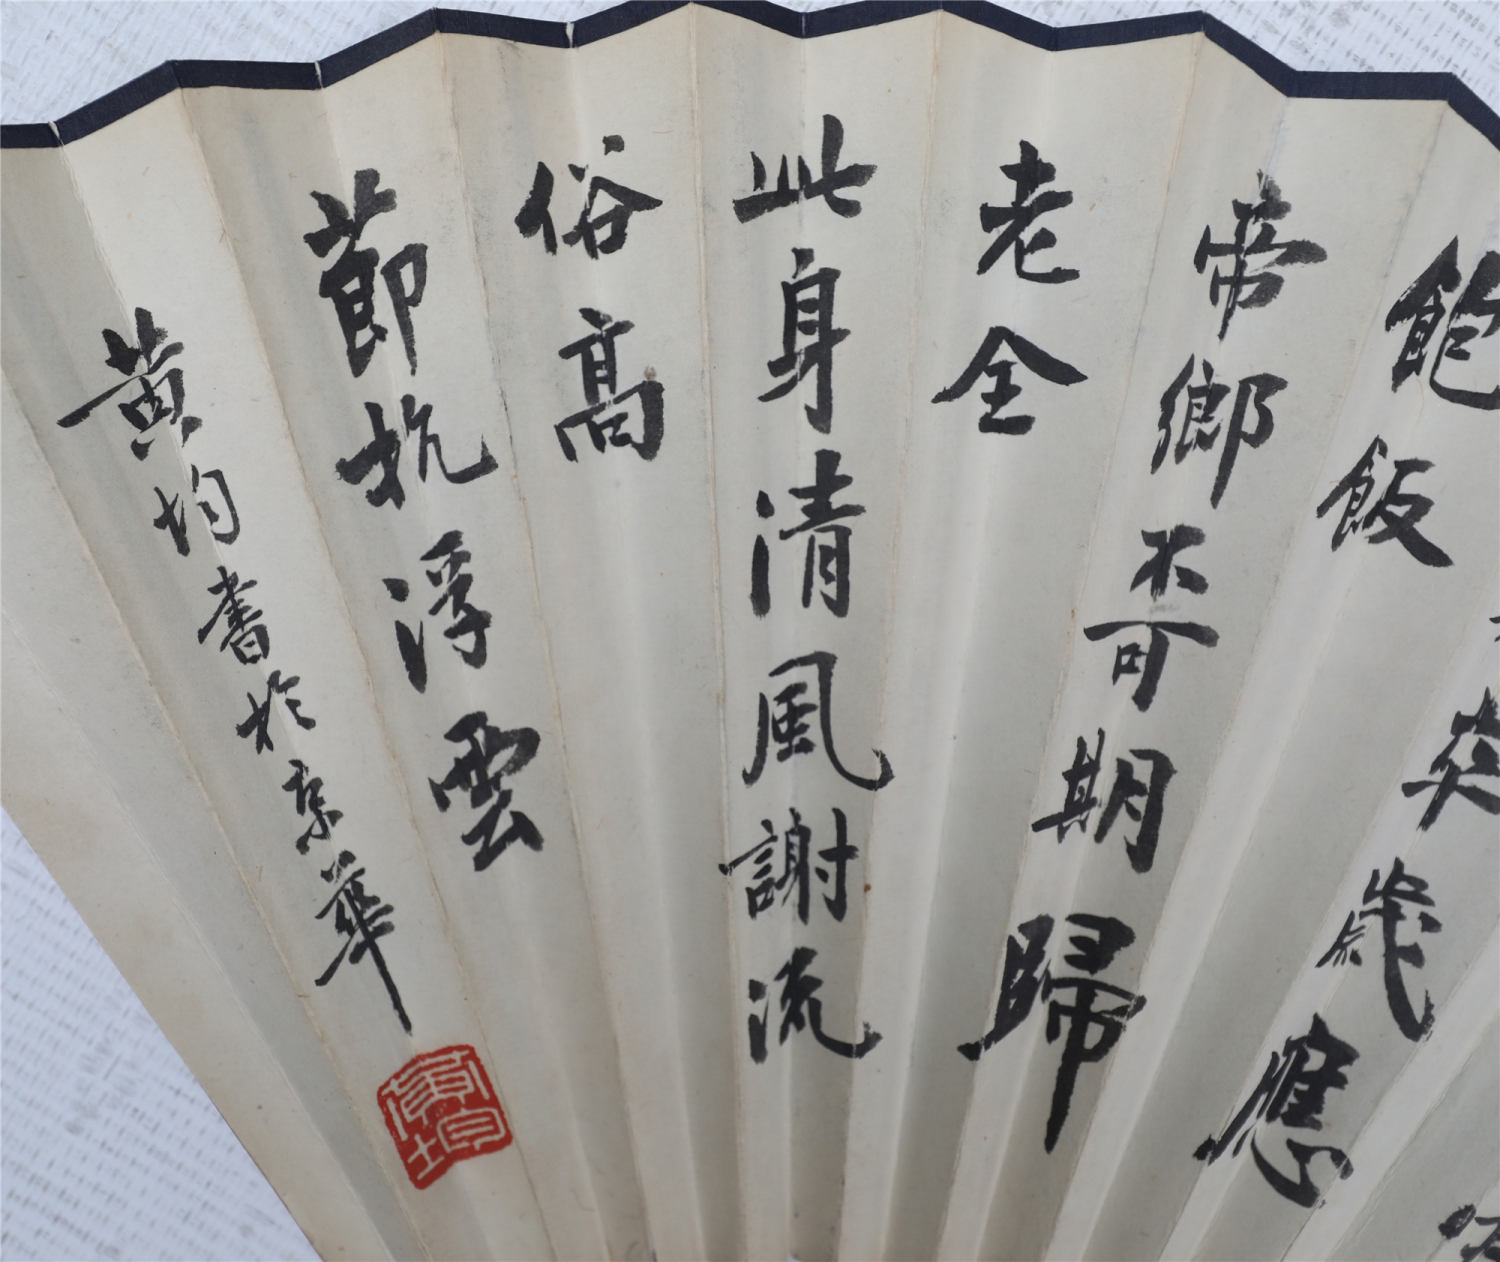 飽飯
炎歲應
帝鄉不可期歸
老全
此身清風謝流
俗高
節抗浮雲
黃均書於京華
黃均